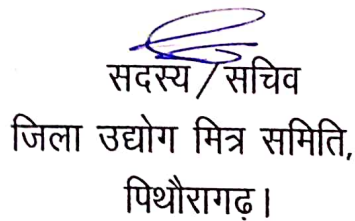 सदस्य/सचिव
जिला उद्योग मित्र समिति,
पिथौरागढ़।